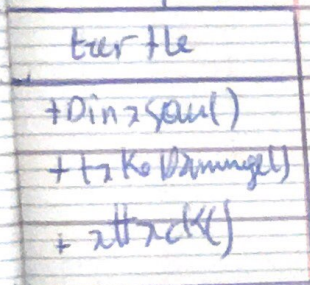 turtle
+Dinasour()
+takeDamage()
+attack()